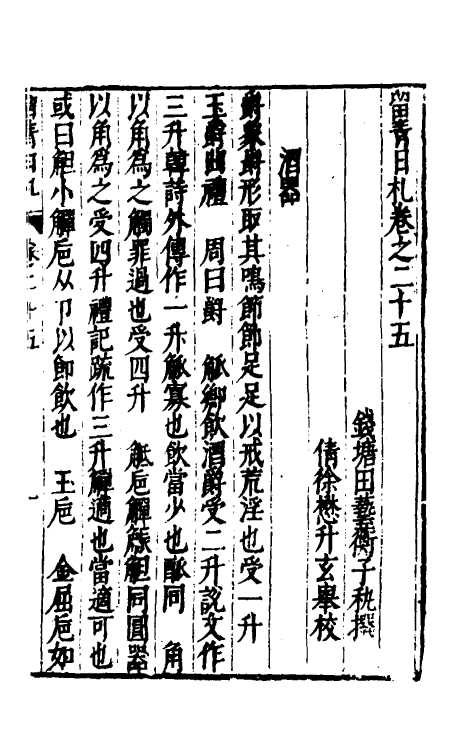 留青日札卷之二十五
錢塘田藝蘅子秇撰
倩徐懋升玄舉校
酒器
爵象爵形取其鳴節節足足以戒荒淫也受一升
玉爵曲禮 周曰爵 觚鄉飲酒爵受二升說文作
三升韓詩外傳作一升觚寡也飲當少也 同 角
以角爲之觸罪過也受四升 觝巵觶 觛同圓器
以角爲之受四升禮記疏作三升觶適也當適可也
或曰觛小觶巵从卩以節飲也 玉巵 金屈巵如
留青日札 卷二十五 一